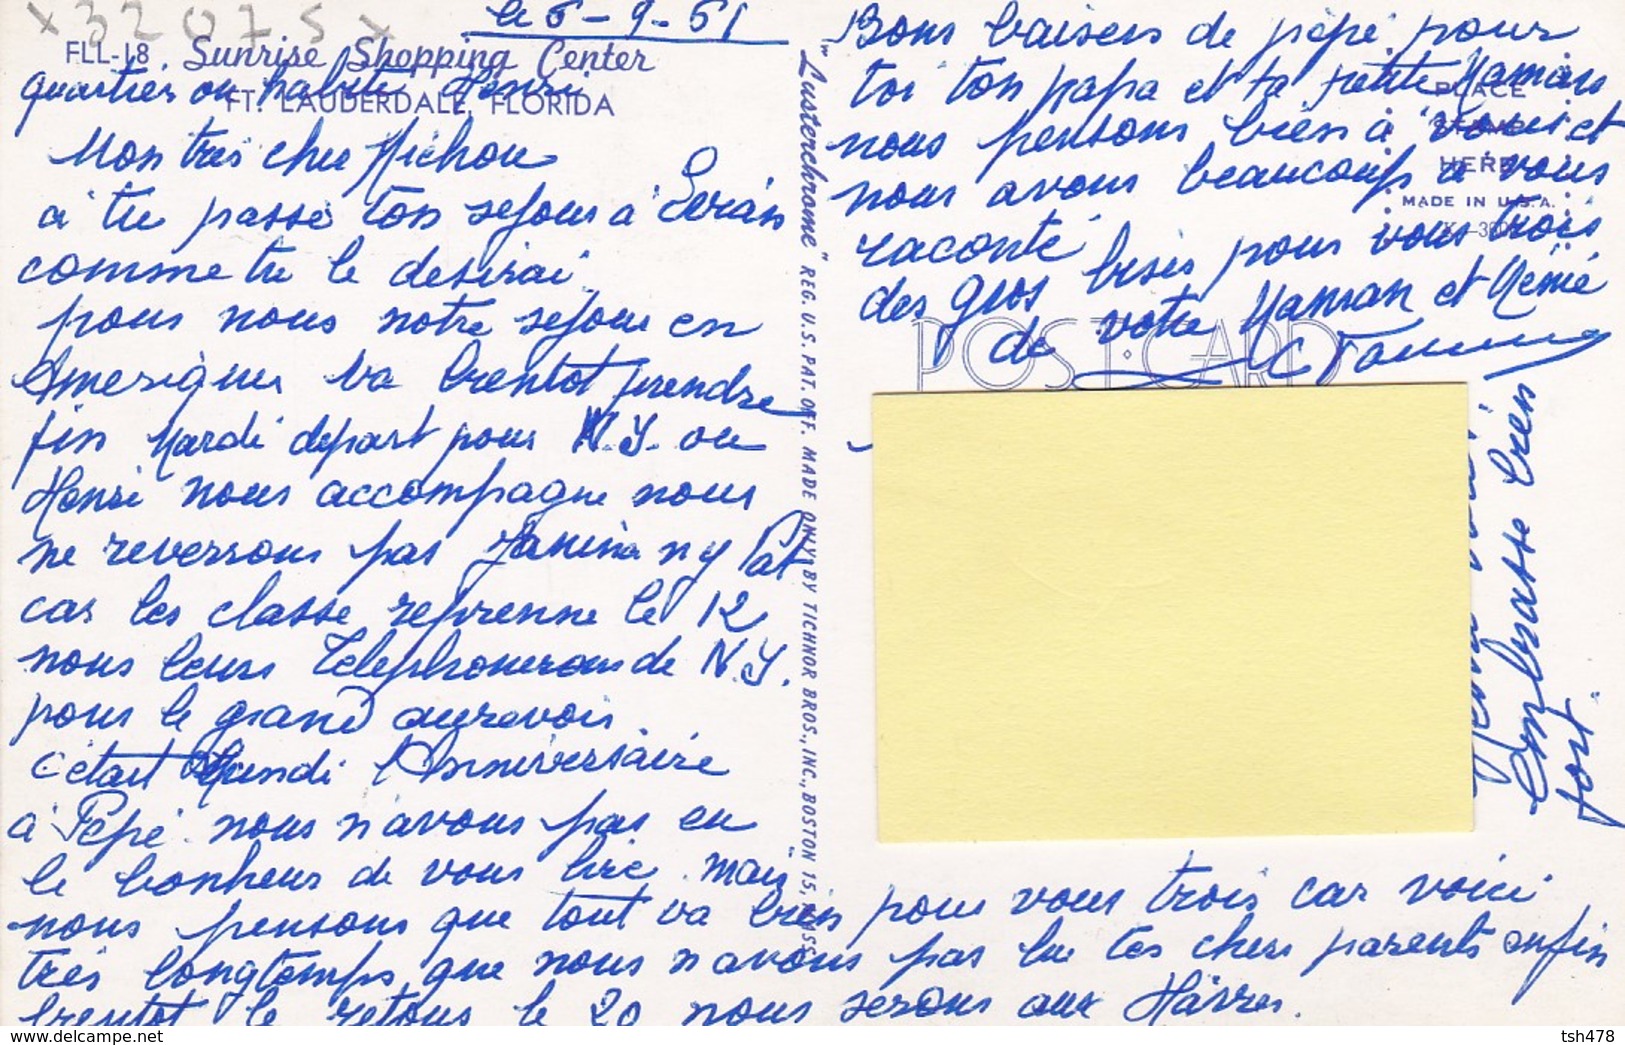 x 32075 x
le 6-9-61
FLL-18. Sunrise Shopping Center
FT. LAUDERDALE, FLORIDA
quartier ou habite Henri
Mon tres cher Michou
a tu passe ton sejour à
comme tu le desirai
pour nous notre sejour en
Amerique va bientot prendre
fin Mardi depart pour N.Y. ou
Henri nous accompagne nous
ne reverrons pas Janina ny Pat
car les classe reprenne le 12
nous leurs Telephonerons de N.Y.
pour le grand aurevoir.
c'etait Lundi l'Anniversaire
à Pépé. nous n'avons pas eu
le bonheur de vous lire. mais
nous pensons que tout va bien pour vous trois car voici
très longtemps que nous n'avons pas lu tes chers parents enfin
bientot le retour le 20 nous serons aux Hâvres.
"Lusterchrome" REG. U.S. PAT. OFF. MADE ONLY BY TICHNOR BROS., INC., BOSTON 15, MASS
Bons baisers de pépé pour
toi ton papa et ta petite Maman
nous pensons bien à vous et
nous avons beaucoup a vous
raconté
des gros bises pour vous trois
de votre Maman et Mémé
PLACE
HERE
MADE IN U.S.A.
POST CARD
Embrasse bien
fort
tsh478